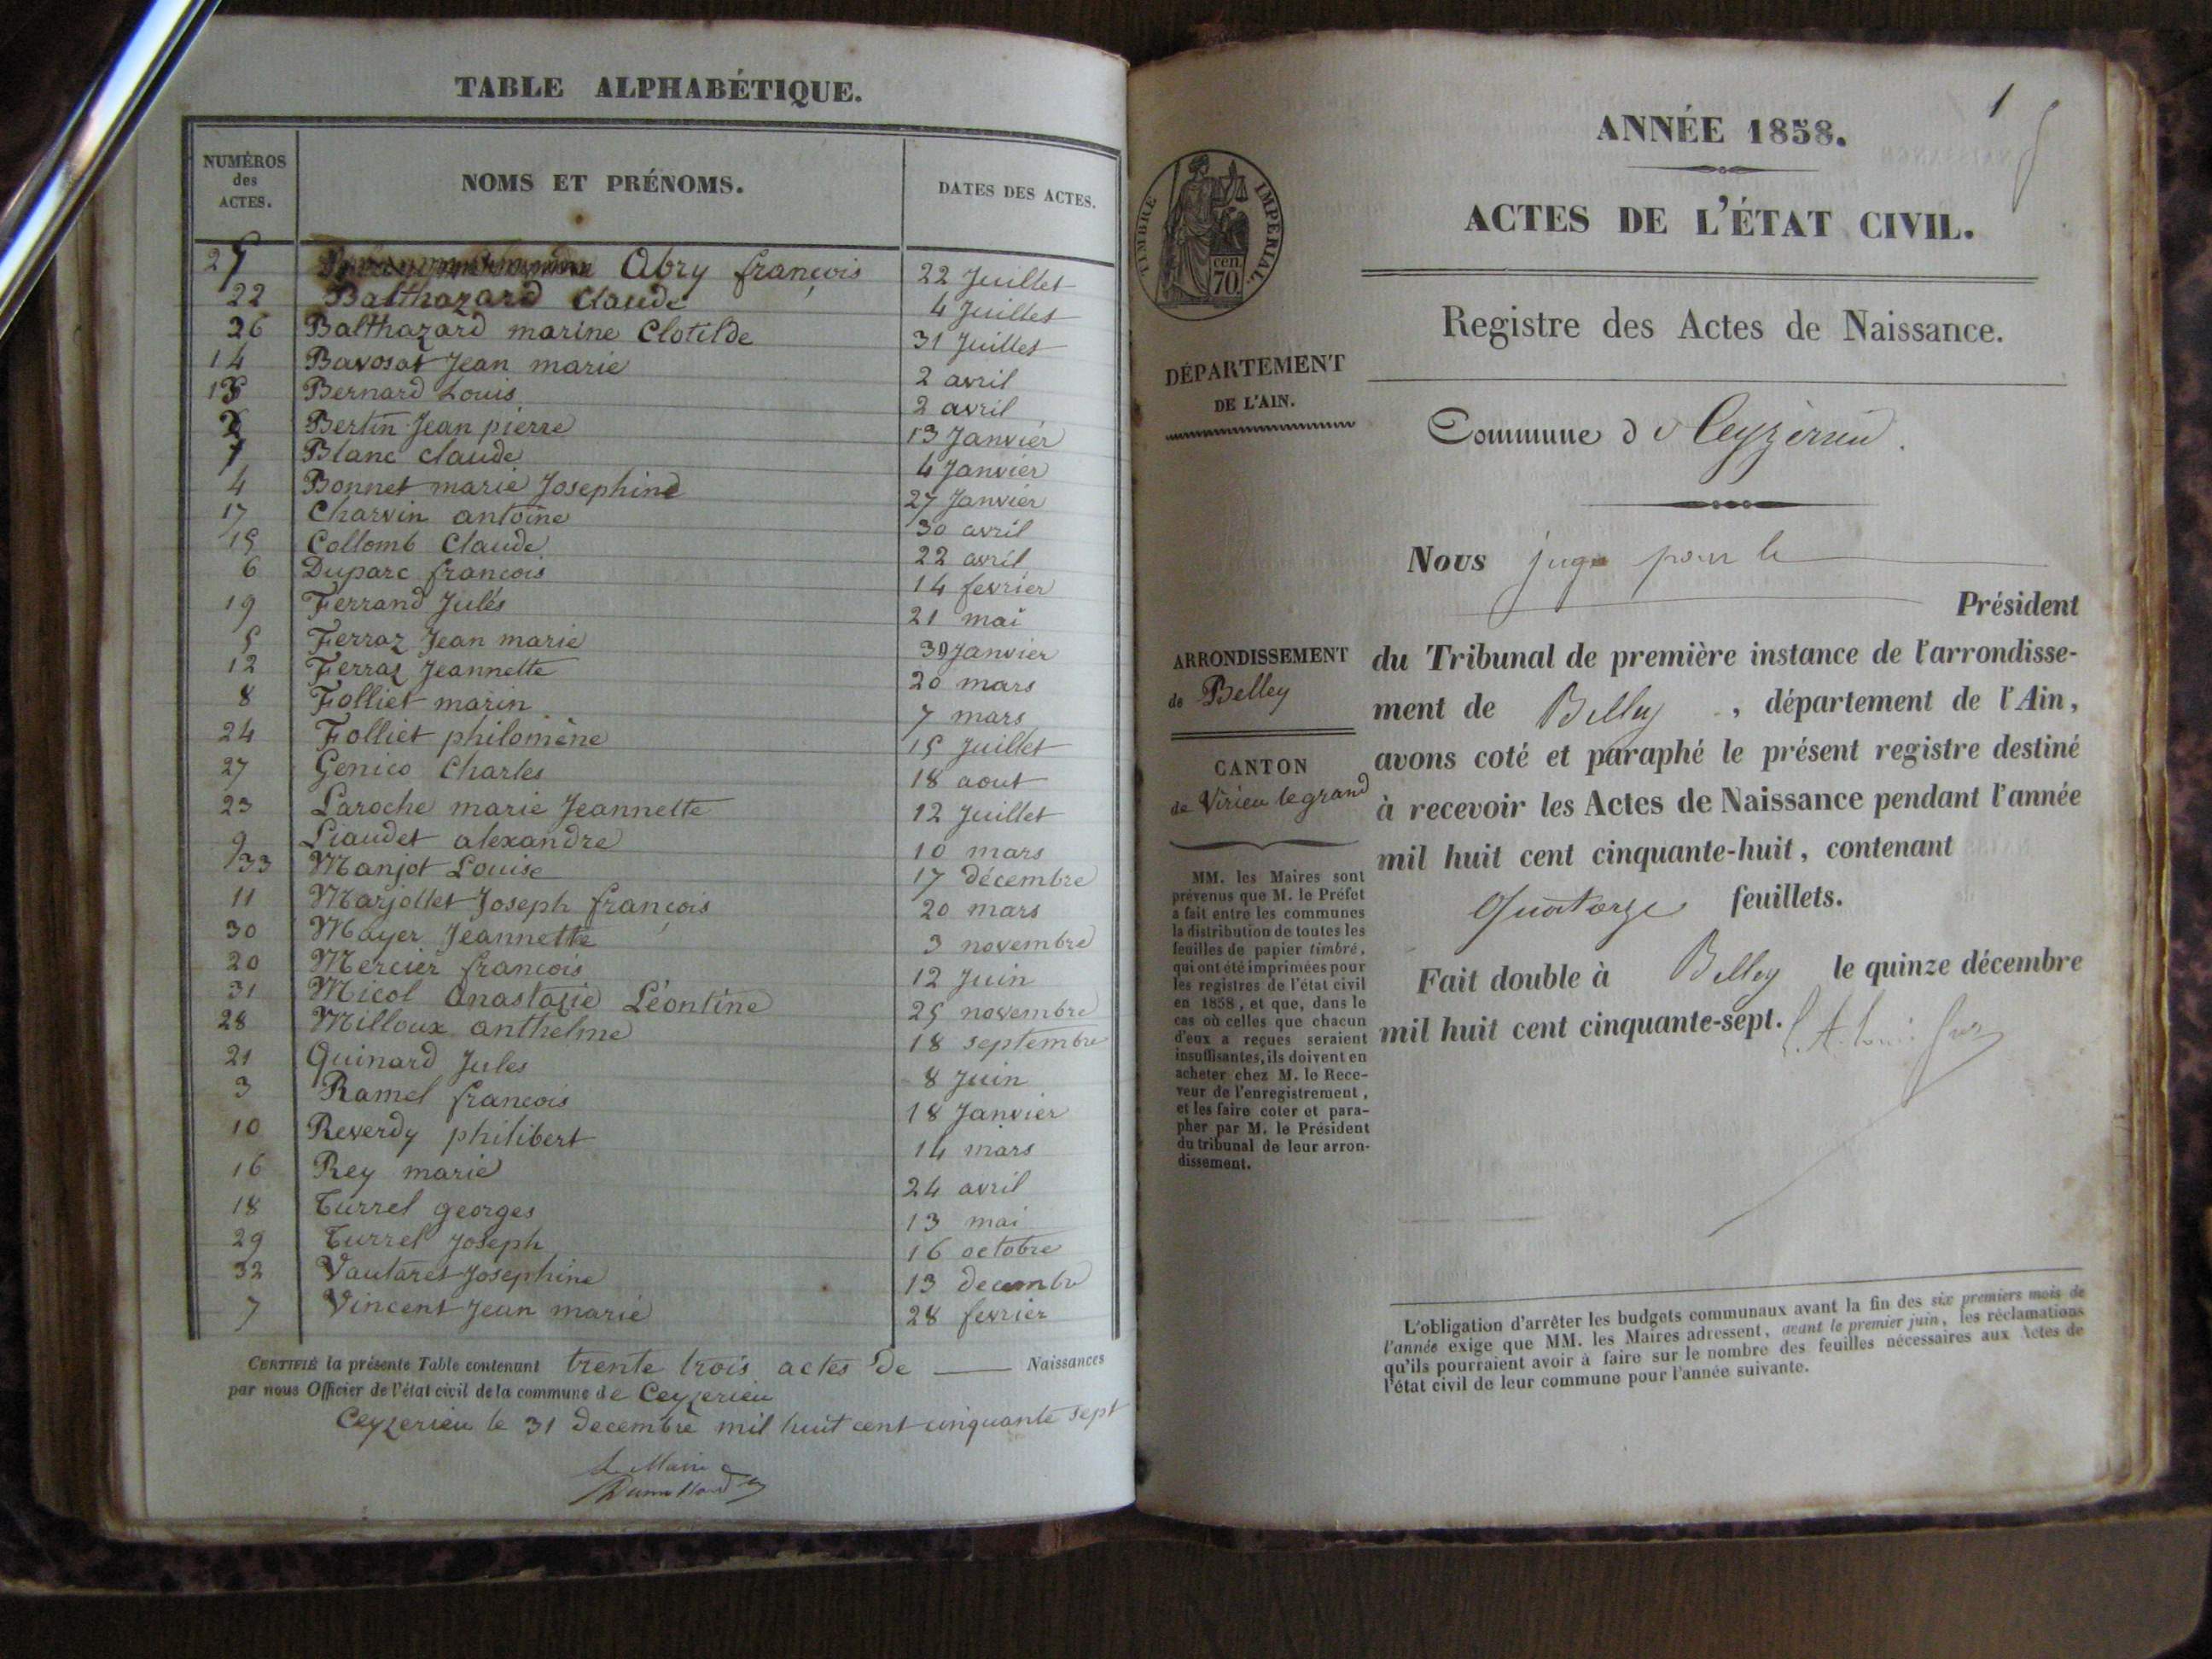 TABLE ALPHABÉTIQUE.
NUMÉROS
des
ACTES.
NOMS ET PRÉNOMS.
DATES DES ACTES.
25 Abry françois 22 Juillet
22 Balthazard Claude 4 Juillet
26 Balthazard marine Clotilde 31 Juillet
14 Bavosat Jean marie 2 avril
13 Bernard Louis 2 avril
2 Bertin Jean pierre 13 Janvier
1 Blanc claude 4 Janvier
4 Bonnet marie Josephine 27 Janvier
17 Charvin antoine 30 avril
15 Collomb Claude 22 avril
6 Duparc francois 14 fevrier
19 Ferrand Jules 21 mai
5 Ferraz Jean marie 30 Janvier
12 Ferraz Jeannette 20 mars
8 Folliet marin 7 mars
24 Folliet philomène 15 Juillet
27 Genico Charles 18 aout
23 Laroche marie Jeannette 12 Juillet
9 Liaudet alexandre 10 mars
33 Manjot Louise 17 décembre
11 Marjollet Joseph françois 20 mars
30 Mayer Jeannette 3 novembre
20 Mercier francois 12 Juin
31 Micol anastasie Léontine 25 novembre
28 Milloux anthelme 18 septembre
21 Quinard Jules 8 Juin
3 Ramel francois 18 Janvier
10 Reverdy philibert 14 mars
16 Rey marie 24 avril
18 Turrel georges 13 mai
29 Turrel Joseph 16 octobre
32 Vautaret Josephine 13 decembre
7 Vincent Jean marie 28 fevrier
CERTIFIÉ la présente Table contenant trente trois actes de Naissances
par nous Officier de l'état civil de la commune de Ceyzerieu
Ceyzerieu le 31 decembre mil huit cent cinquante sept
Le Maire
1
ANNÉE 1858.
TIMBRE IMPÉRIAL.
70 cen
ACTES DE L'ÉTAT CIVIL.
Registre des Actes de Naissance.
DÉPARTEMENT
DE L'AIN.
Commune de Ceyzerieu.
Nous juge pour le
Président
ARRONDISSEMENT
de Belley
CANTON
de Virieu legrand
du Tribunal de première instance de l'arrondisse-
ment de Belley, département de l'Ain,
avons coté et paraphé le présent registre destiné
à recevoir les Actes de Naissance pendant l'année
mil huit cent cinquante-huit, contenant
Quatorze feuillets.
Fait double à Belley le quinze décembre
mil huit cent cinquante-sept.
MM. les Maires sont
prévenus que M. le Préfet
a fait entre les communes
la distribution de toutes les
feuilles de papier timbré,
qui ont été imprimées pour
les registres de l'état civil
en 1858, et que, dans le
cas où celles que chacun
d'eux a reçues seraient
insuffisantes, ils doivent en
acheter chez M. le Rece-
veur de l'enregistrement,
et les faire coter et para-
pher par M. le Président
du tribunal de leur arron-
dissement.
L'obligation d'arrêter les budgets communaux avant la fin des six premiers mois de
l'année exige que MM. les Maires adressent, avant le premier juin, les réclamations
qu'ils pourraient avoir à faire sur le nombre des feuilles nécessaires aux Actes de
l'état civil de leur commune pour l'année suivante.